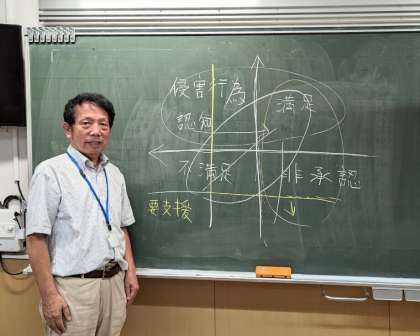 侵害行為
認知
満足
不満足
非承認
要支援